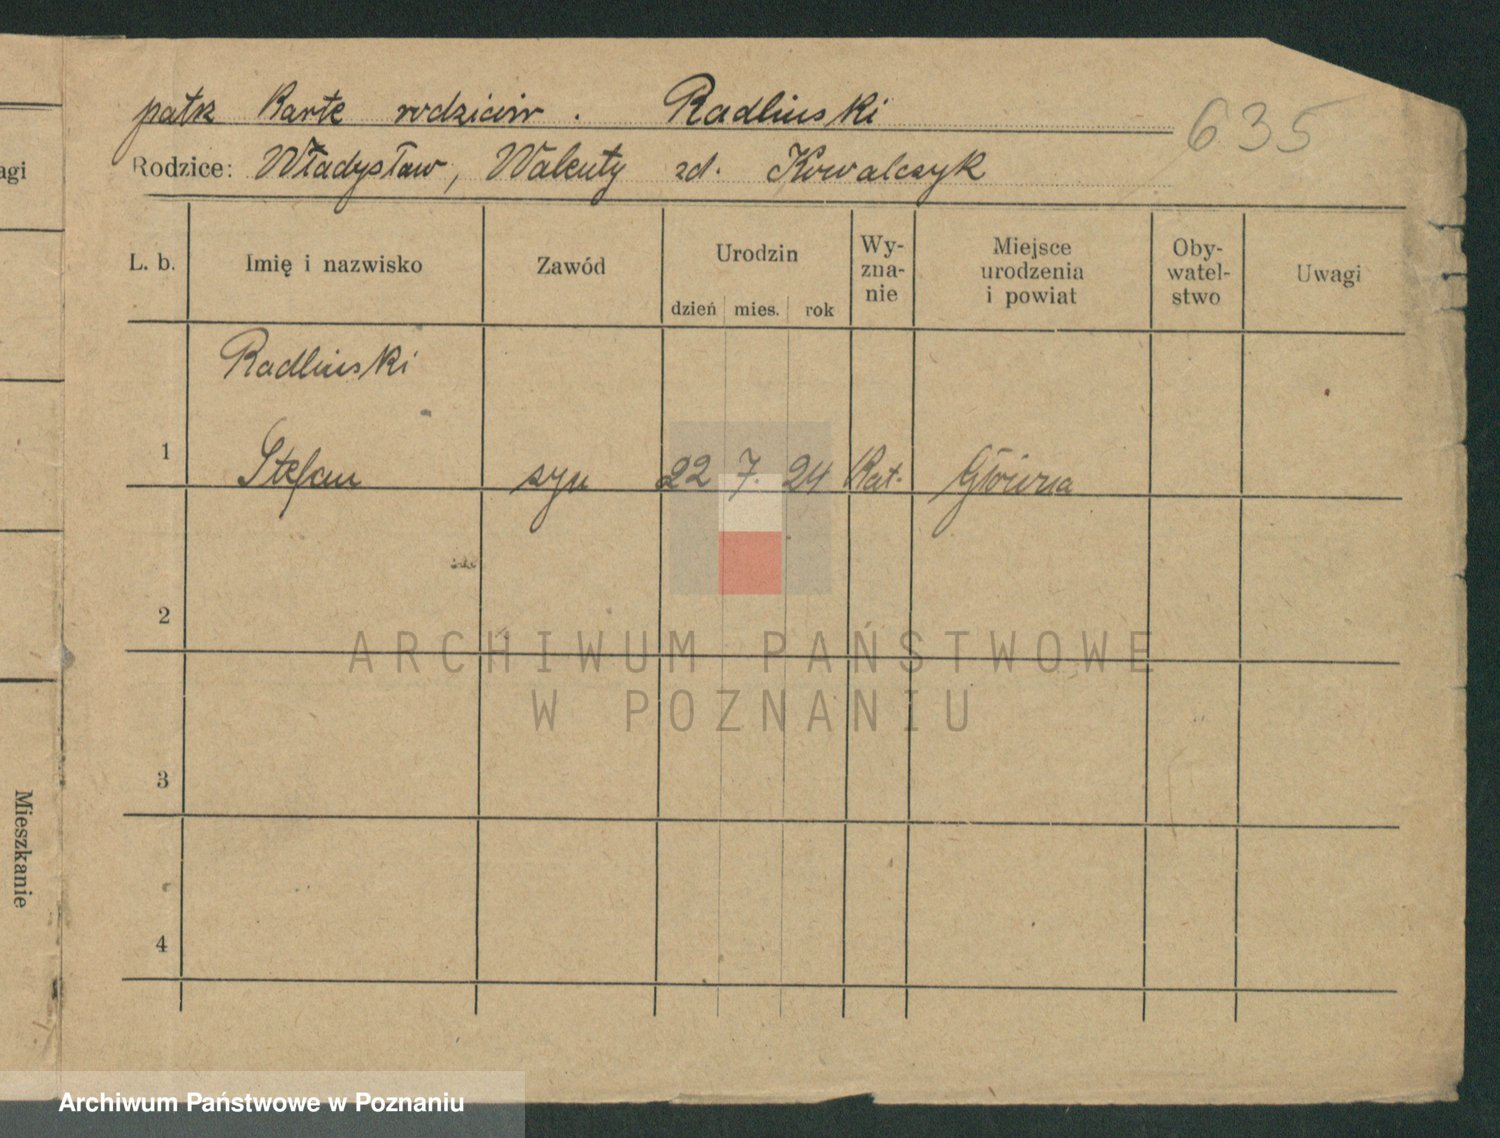 patrz Kartę rodziców. Radliński
635
Rodzice: Władysław, Walenty zd. Kowalczyk
agi
L. b.
Imię i nazwisko
Zawód
Urodzin
dzień mies. rok
Wy-
zna-
nie
Miejsce
urodzenia
i powiat
Oby-
watel-
stwo
Uwagi
Radliński
1 Stefan syn 22 7. 24 Kat. Główna
2
3
4
Mieszkanie
ARCHIWUM PAŃSTWOWE
W POZNANIU
Archiwum Państwowe w Poznaniu